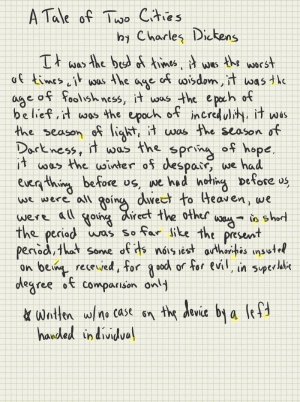 A Tale of Two Cities
by Charles Dickens
It was the best of times, it was the worst
of times, it was the age of wisdom, it was the
age of foolishness, it was the epoch of
belief, it was the epoch of incredulity, it was
the season of light, it was the season of
Darkness, it was the spring of hope,
it was the winter of despair, we had
everything before us, we had noting before us,
we were all going direct to Heaven, we
were all going direct the other way - in short
the period was so far like the present
period, that some of its noisiest authorities insisted
on being received, for good or for evil, in superlative
degree of comparison only
* Written w/no case on the device by a left
handed individual